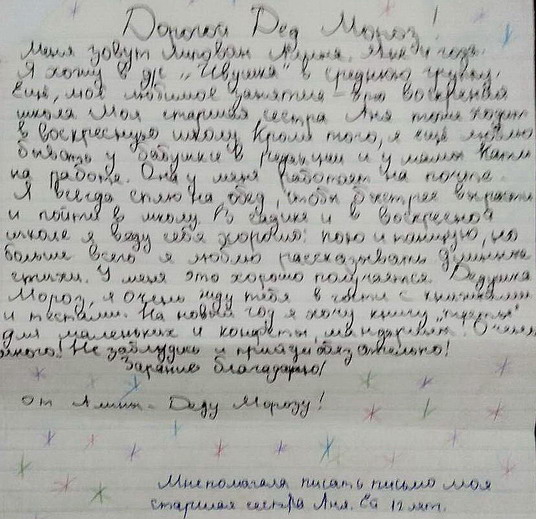 Дорогой Дед Мороз!
Меня зовут Алина. Мне 4 года.
Я хожу в д/с „Ивушка" в среднюю группу.
Ещё, моё любимое занятие - это воскресная
школа Моя старшая сестра Аня тоже ходит
в воскресную школу. Кроме того, я ещё люблю
бывать у бабушки в редакции и у мамы Кати
на работе. Она у меня работает на почте.
Я всегда сплю на обед, чтобы быстрее вырасти
и пойти в школу. В садике и в воскресной
школе я веду себя хорошо: пою и танцую, но
больше всего я люблю рассказывать длинные
стихи. У меня это хорошо получается. Дедушка
Мороз, я очень жду тебя в гости с
и тестами. На новый год я хочу книгу
для маленьких и конфеты, мандарины! Очень
много! Не заблудись и приходи обязательно!
Зарание благодарю!
от Алины - Деду Морозу!
Мне помогала писать письмо моя
старшая сестра Аня. Ей 12 лет.